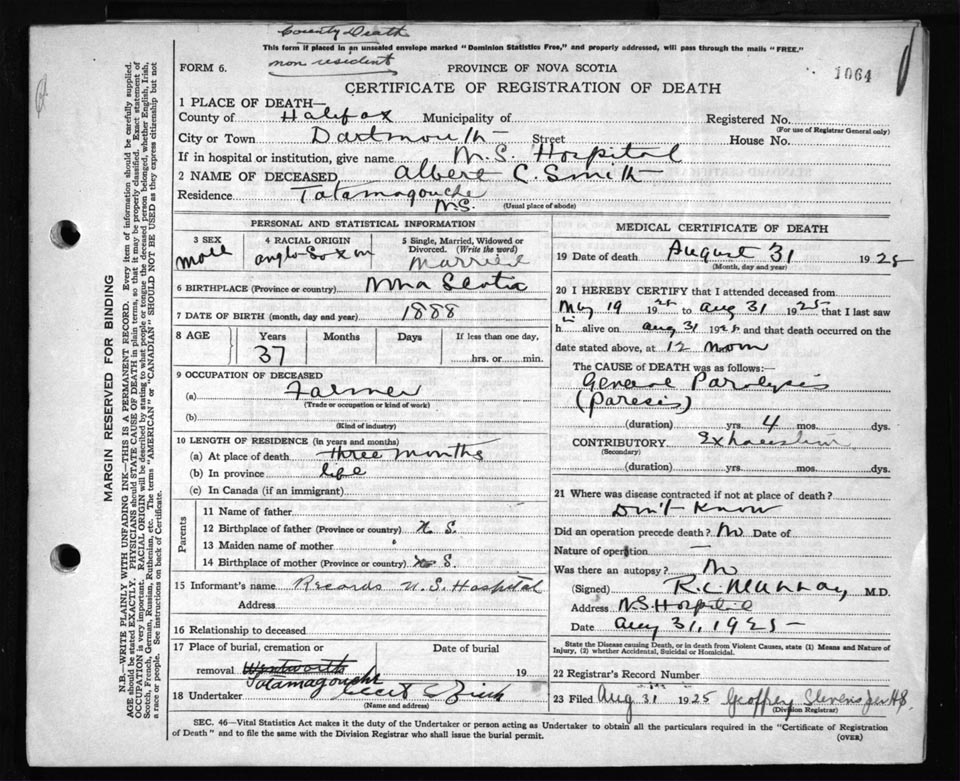 County Death
This form if placed in an unsealed envelope marked "Dominion Statistics Free," and properly addressed, will pass through the mails "FREE."
non resident
FORM 6.
PROVINCE OF NOVA SCOTIA
1064
CERTIFICATE OF REGISTRATION OF DEATH
1 PLACE OF DEATH—
County of Halifax Municipality of Registered No.
(For use of Registrar General only)
City or Town Dartmouth Street House No.
If in hospital or institution, give name N.S. Hospital
2 NAME OF DECEASED Albert C. Smith
Residence Tatamagouche
N.S. (Usual place of abode)
PERSONAL AND STATISTICAL INFORMATION
3 SEX 4 RACIAL ORIGIN 5 Single, Married, Widowed or
Divorced. (Write the word)
male anglo-Saxon Married
6 BIRTHPLACE (Province or country) Nova Scotia
7 DATE OF BIRTH (month, day and year) 1888
8 AGE Years Months Days If less than one day,
37 hrs. or min.
9 OCCUPATION OF DECEASED
(a) Farmer
(Trade or occupation or kind of work)
(b)
(Kind of industry)
10 LENGTH OF RESIDENCE (in years and months)
(a) At place of death three months
(b) In province life
(c) In Canada (if an immigrant)
Parents
11 Name of father
12 Birthplace of father (Province or country) N.S.
13 Maiden name of mother
14 Birthplace of mother (Province or country) N.S.
15 Informant's name Records N.S. Hospital
Address
16 Relationship to deceased
17 Place of burial, cremation or Date of burial
removal Wentworth 19
Tatamagouche
18 Undertaker
(Name and address)
MEDICAL CERTIFICATE OF DEATH
19 Date of death August 31 1925
(Month, day and year)
20 I HEREBY CERTIFY that I attended deceased from
May 19 1925 to Aug 31 1925 that I last saw
him alive on aug 31 1925 and that death occurred on
date stated above, at 12 noon
The CAUSE OF DEATH was as follows:
General Paralysis
(Paresis)
(duration) yrs. 4 mos. dys.
CONTRIBUTORY Exhaustion
(Secondary)
(duration) yrs. mos. dys.
21 Where was disease contracted if not at place of death?
Don't Know
Did an operation precede death? No Date of
Nature of operation —
Was there an autopsy? No
(Signed) R.C. Murray, M.D.
Address N.S. Hospital
Date Aug 31, 1925
State the Disease causing Death, or in death from Violent Causes, state (1) Means and Nature of
Injury, (2) whether Accidental, Suicidal or Homicidal.
22 Registrar's Record Number
23 Filed Aug 31 1925 Geoffrey Stevens
(Division Registrar)
SEC. 46—Vital Statistics Act makes it the duty of the Undertaker or person acting as Undertaker to obtain all the particulars required in the "Certificate of Registration
of Death" and to file the same with the Division Registrar who shall issue the burial permit.
(OVER)
MARGIN RESERVED FOR BINDING
N.B.—WRITE PLAINLY WITH UNFADING INK—THIS IS A PERMANENT RECORD. Every item of information should be carefully supplied.
AGE should be stated EXACTLY. PHYSICIANS should STATE CAUSE OF DEATH in plain terms, so that it may be properly classified. Exact statement of
OCCUPATION is very important. RACIAL ORIGIN will be described by stating to what people or tongue the deceased person belonged, whether English, Irish,
Scotch, French, German, Russian, Ruthenian, etc. The terms "AMERICAN" or "CANADIAN" SHOULD NOT BE USED as they express citizenship but not
a race or people. See instructions on back of Certificate.